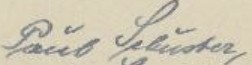 Paul Schuster,